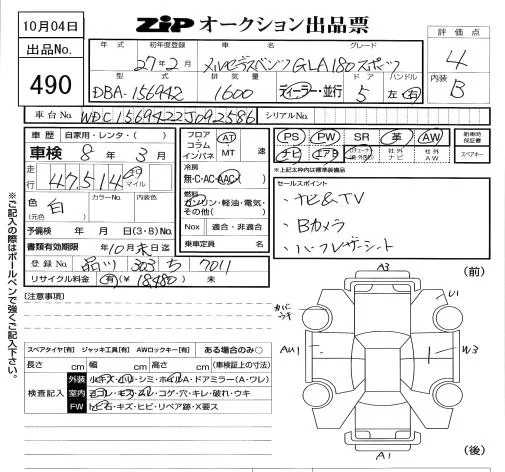 10月04日
ZIP オークション出品票
出品No.
490
評価点
4
内装
B
年式 初年度登録 車名 グレード
27年2月 メルセデスベンツGLA180スポーツ
型式 排気量 ドア ハンドル
DBA-156942 1600 ディーラー・並行 5 左・右
車台No. WDC1569422J092586 シリアルNo.
車歴 自家用・レンタ・( )
車検 8年 3月
走行 47,514 キロ マイル
色 (元色) 白 カラーNo. 内装色
予備検 年 月 日(3・8)No.
書類有効期限 年 10月 末日迄
登録No. 品川 303 ち 7011
リサイクル料金 有(¥18,480) 未
フロア コラム インパネ AT ・MT 速
冷房
無・C・AC・AAC
燃料
ガソリン・軽油・電気・
その他( )
Nox 適合・非適合
乗車定員 名
PS PW SR 革 AW
ナビ エアB 社外ナビ 社外AW
新車時保証書
スペアキー
※上記太枠内は標準装備品
セールスポイント
・ナビ&TV
・Bカメラ
・ハーフレザーシート
[注意事項]
スペアタイヤ[有] ジャッキ工具[有] AWロックキー[有] ある場合のみ○
長さ cm 幅 cm 高さ cm (車検証上の寸法)
検査記入
外装 小キズ・小U・シミ・ホイルA・ドアミラー(A・ワレ)
室内 ヨゴレ・キズ・スレ・コゲ・穴・キレ・破れ・ウキ
FW 飛石・キズ・ヒビ・リペア跡・X要ス
(前)
A3
U1
カバーウキ
AU1
W3
A1
(後)
※ご記入の際はボールペンで強くご記入下さい。